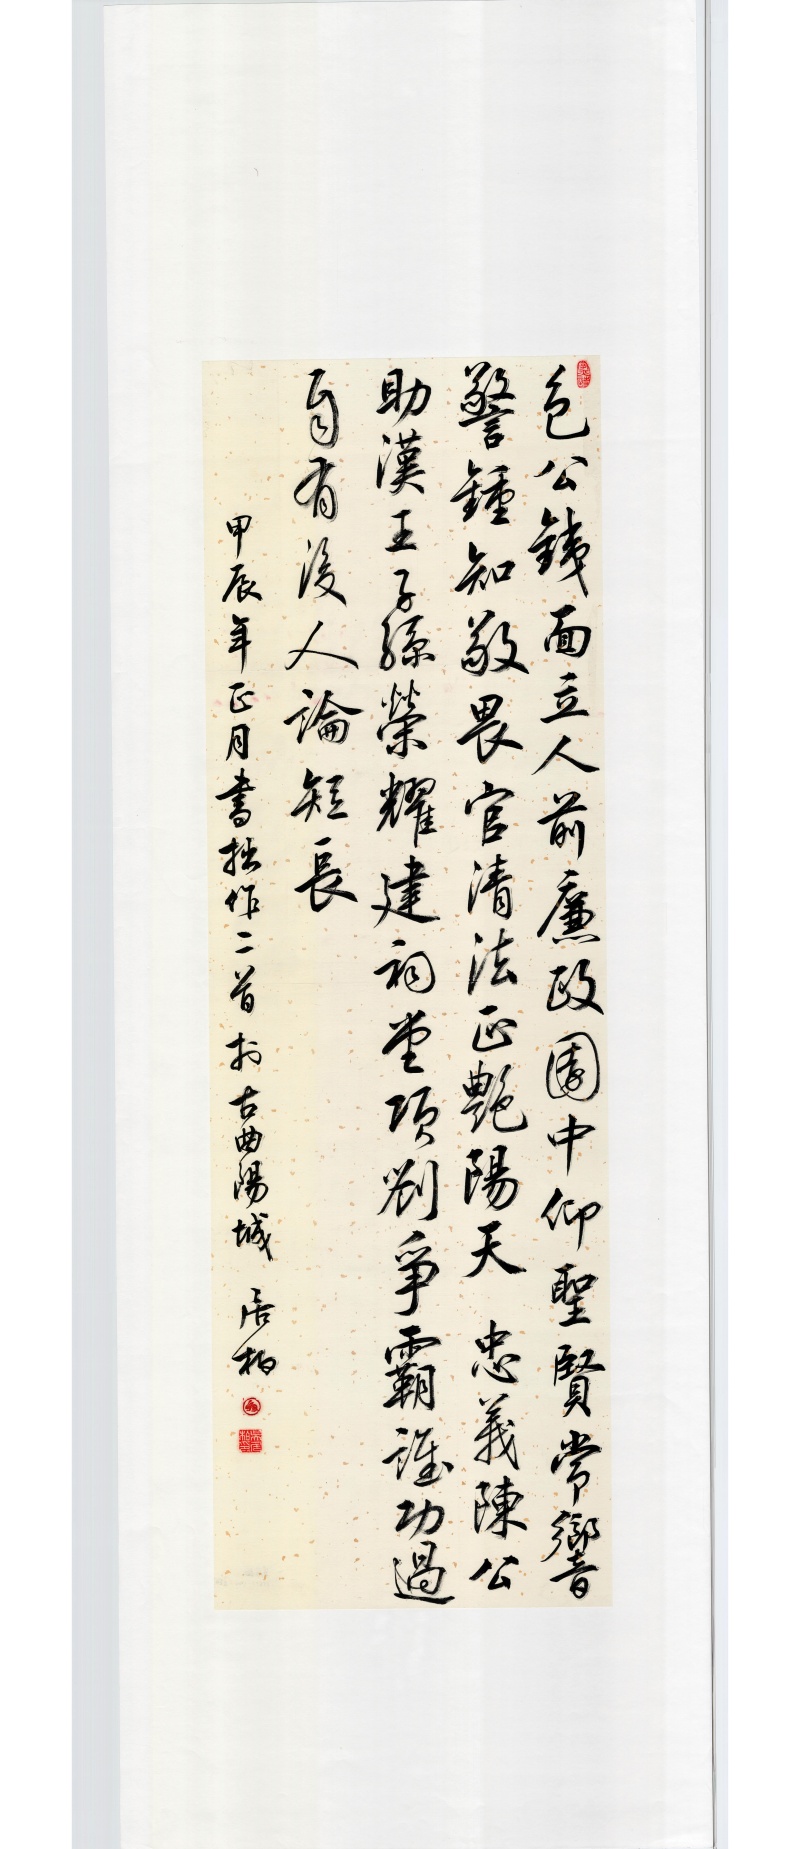 包公鐵面立人前廉政園中仰聖賢常響
警鍾知敬畏官清法正艷陽天 忠義陳公
助漢王子孫榮耀建祠堂項劉爭霸誰功過
自有後人論短長
甲辰年正月書拙作二首於古曲陽城 居柏